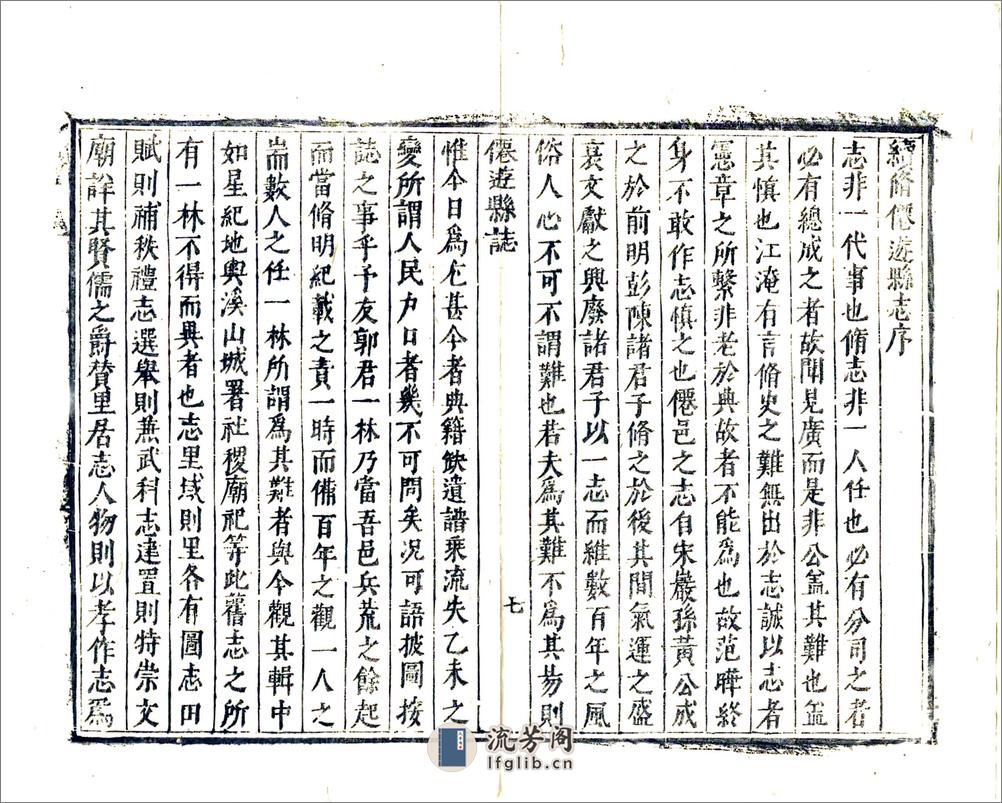 續脩僊遊縣志序
志非一代事也脩志非一人任也必有分司之者
必有總成之者故聞見廣而是非公盖其難也盖
其慎也江淹有言脩史之難無出於志誠以志者
憲章之所繫非老於典故者不能爲也故范曄終
身不敢作志慎之也僊邑之志自宋巖孫黃公成
之於前明彭陳諸君子脩之於後其間氣運之盛
衰文獻之興廢諸君子以一志而維數百年之風
俗人心不可不謂難也若夫爲其難不爲其易則
僊遊縣誌
七
惟今日爲尤甚今者典籍缺遺譜乘流失乙未之
變所謂人民户口者幾不可問矣况可語披圖按
誌之事乎予友郭君一林乃當吾邑兵荒之餘起
而當脩明紀載之責一時而備百年之觀一人之
耑數人之任一林所謂爲其難者與今觀其輯中
如星紀地輿溪山城署社稷廟祀等此舊志之所
有一林不得而異者也志里域則里各有圖志田
賦則補秩禮志選舉則兼武科志建置則特崇文
廟詳其賢儒之爵賛里居志人物則以孝作志爲
流芳阁
lfglib.cn